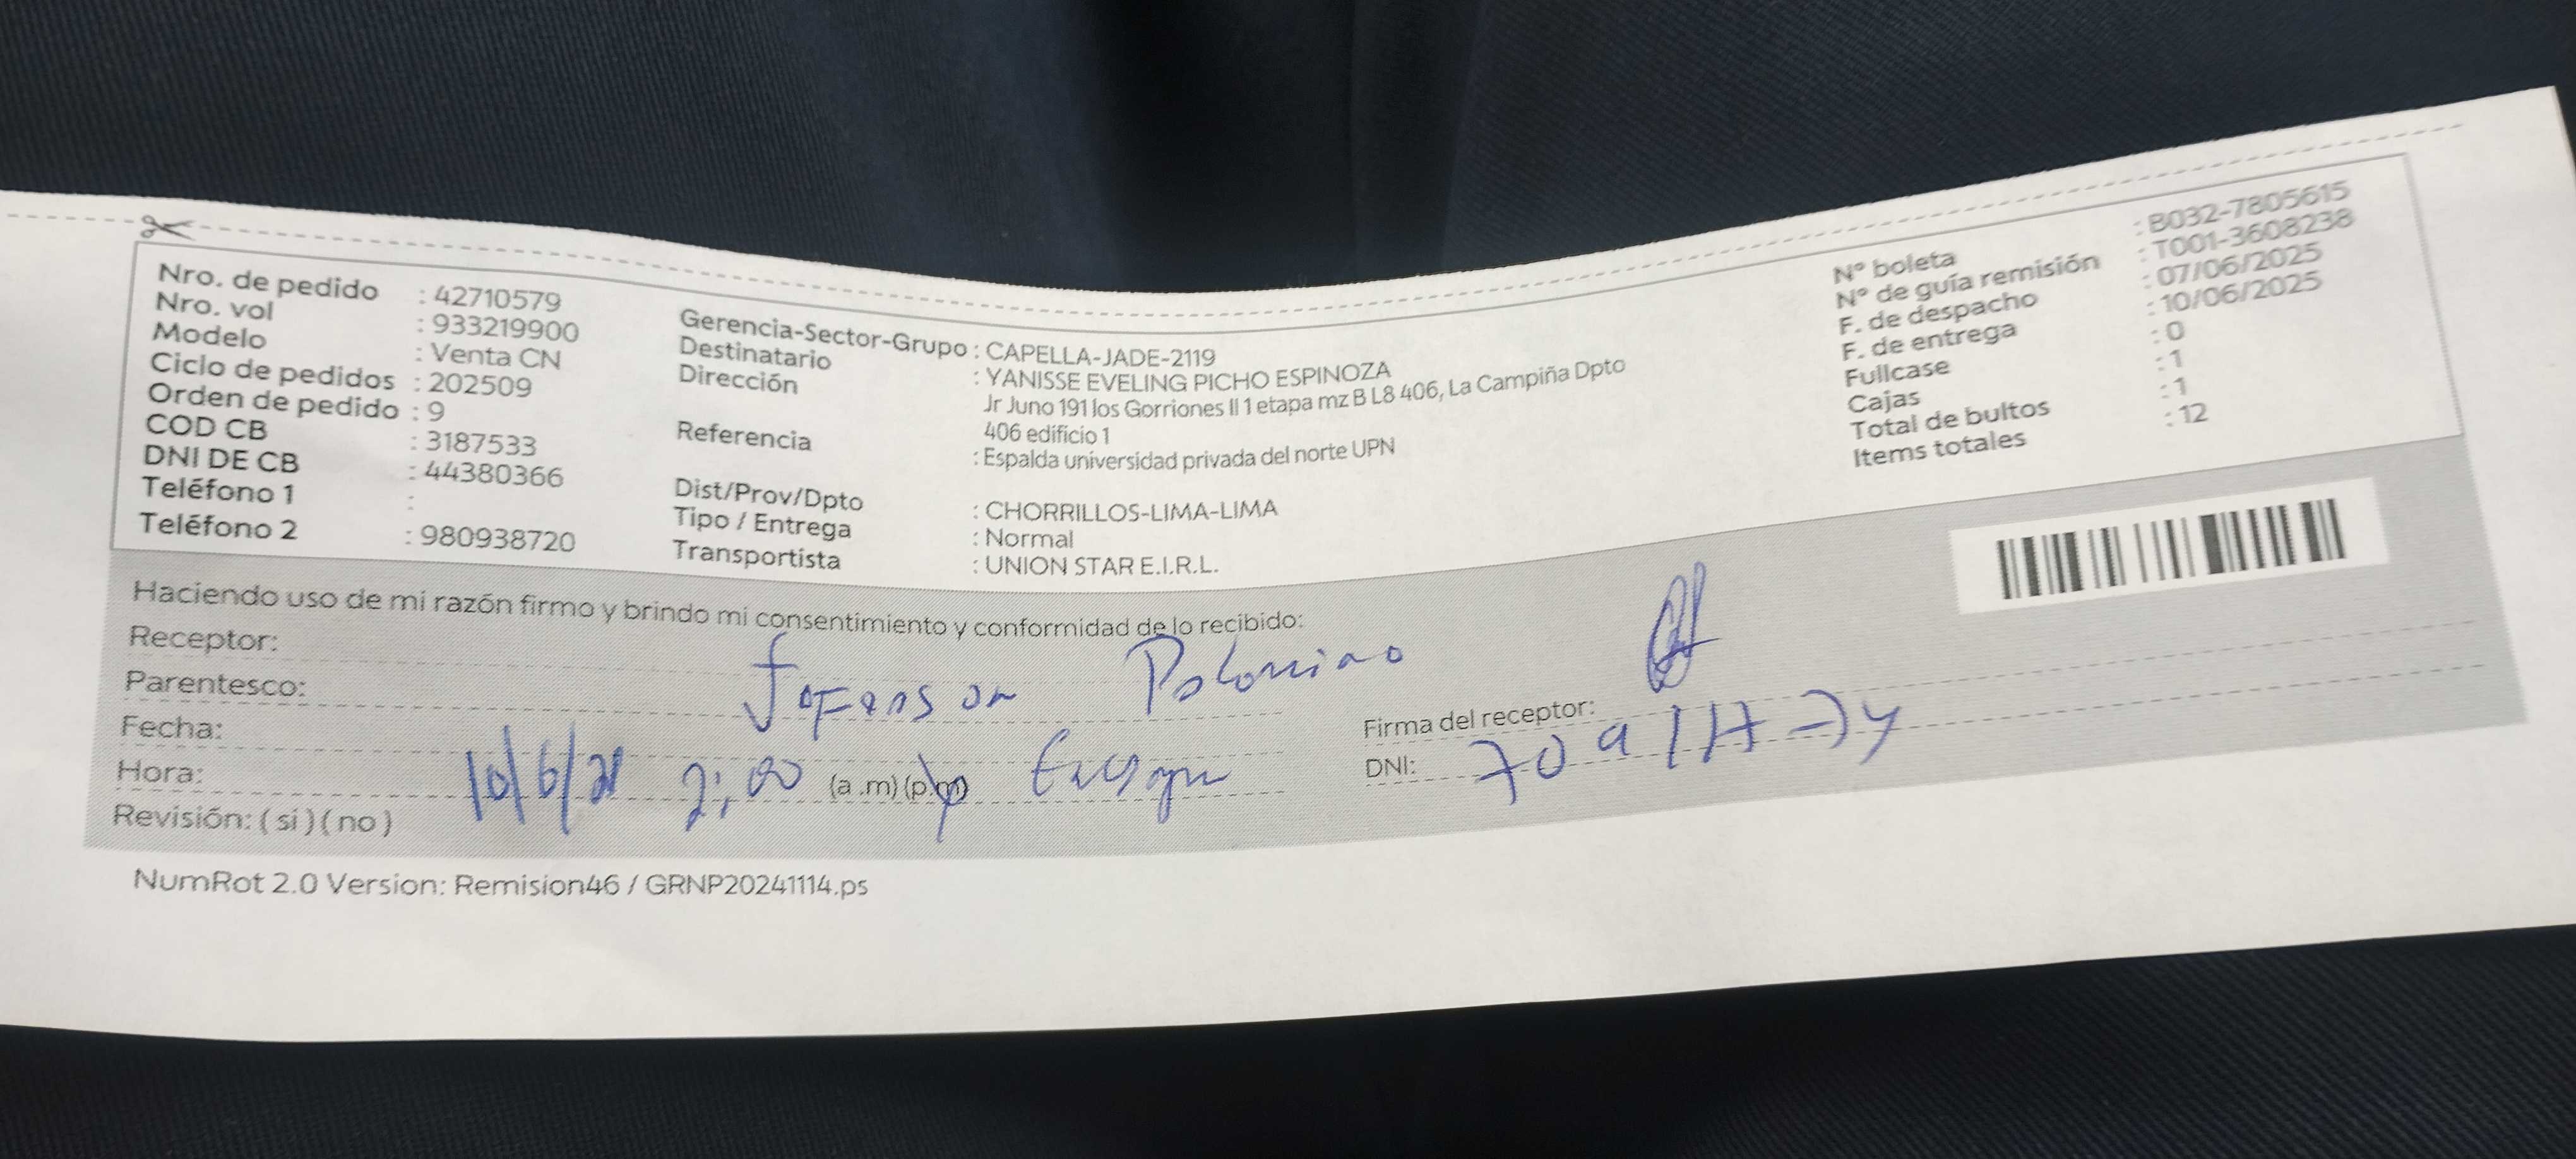 Nro. de pedido : 42710579
Nro. vol : 933219900
Modelo : Venta CN
Ciclo de pedidos : 202509
Orden de pedido : 9
COD CB : 3187533
DNI DE CB : 44380366
Teléfono 1 :
Teléfono 2 : 980938720
Gerencia-Sector-Grupo : CAPELLA-JADE-2119
Destinatario : YANISSE EVELING PICHO ESPINOZA
Dirección : Jr Juno 191 los Gorriones II 1 etapa mz B L8 406, La Campiña Dpto
406 edificio 1
Referencia : Espalda universidad privada del norte UPN
Dist/Prov/Dpto : CHORRILLOS-LIMA-LIMA
Tipo / Entrega : Normal
Transportista : UNION STAR E.I.R.L.
N° boleta : B032-7805615
N° de guía remisión : T001-3608238
F. de despacho : 07/06/2025
F. de entrega : 10/06/2025
Fullcase : 0
Cajas : 1
Total de bultos : 1
Items totales : 12
Haciendo uso de mi razón firmo y brindo mi consentimiento y conformidad de lo recibido:
Receptor:
Parentesco:
Fecha:
Hora: 2:00 (a.m)(p.m)
Revisión: ( si ) ( no )
Firma del receptor:
DNI:
NumRot 2.0 Version: Remision46 / GRNP20241114.ps